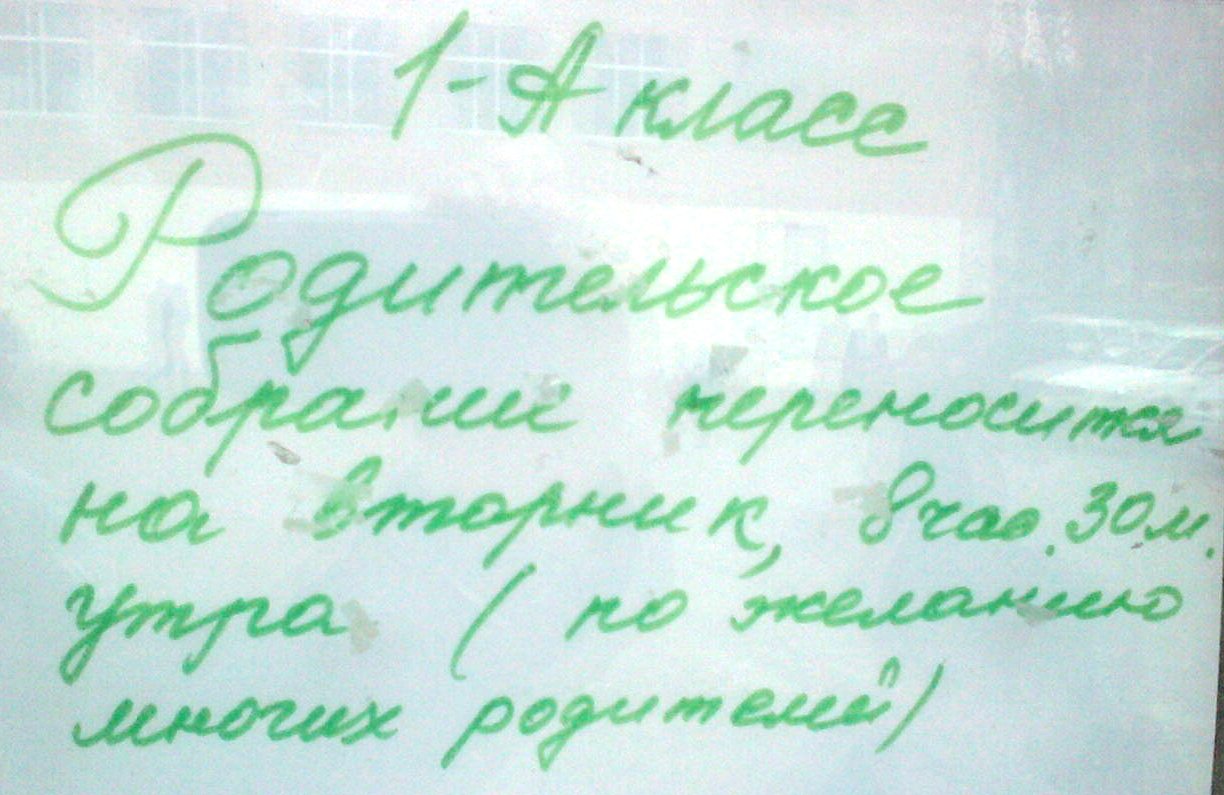 1-А класс
Родительское
собрание переносится
на вторник, 8 час. 30 м.
утра ( по желанию
многих родителей)